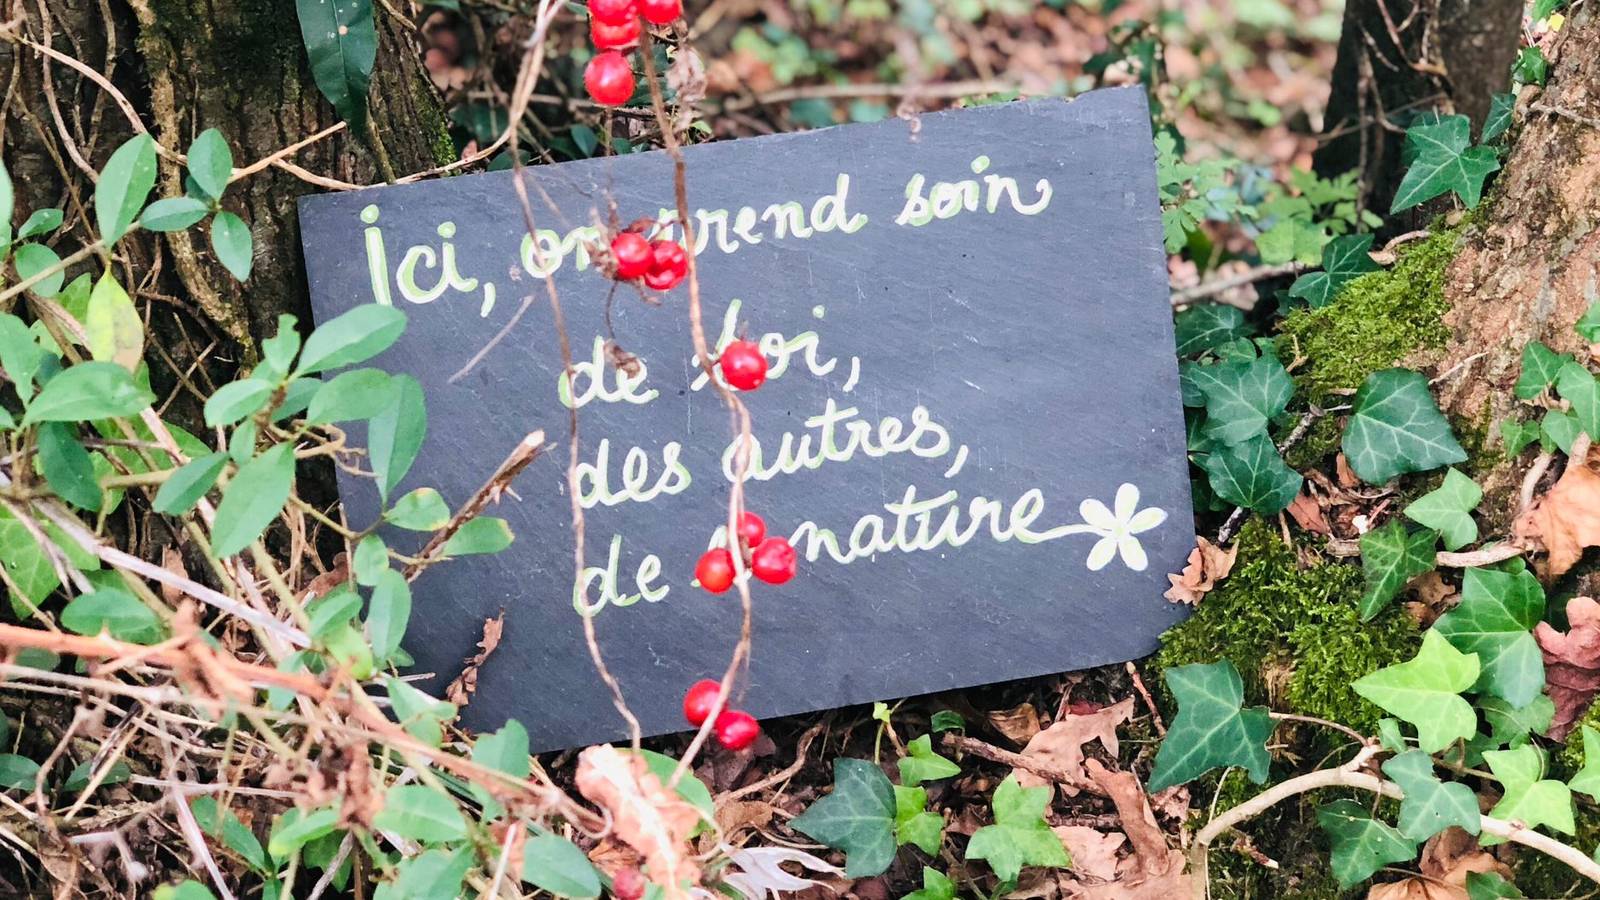 Ici, on prend soin
de soi,
des autres,
de nature